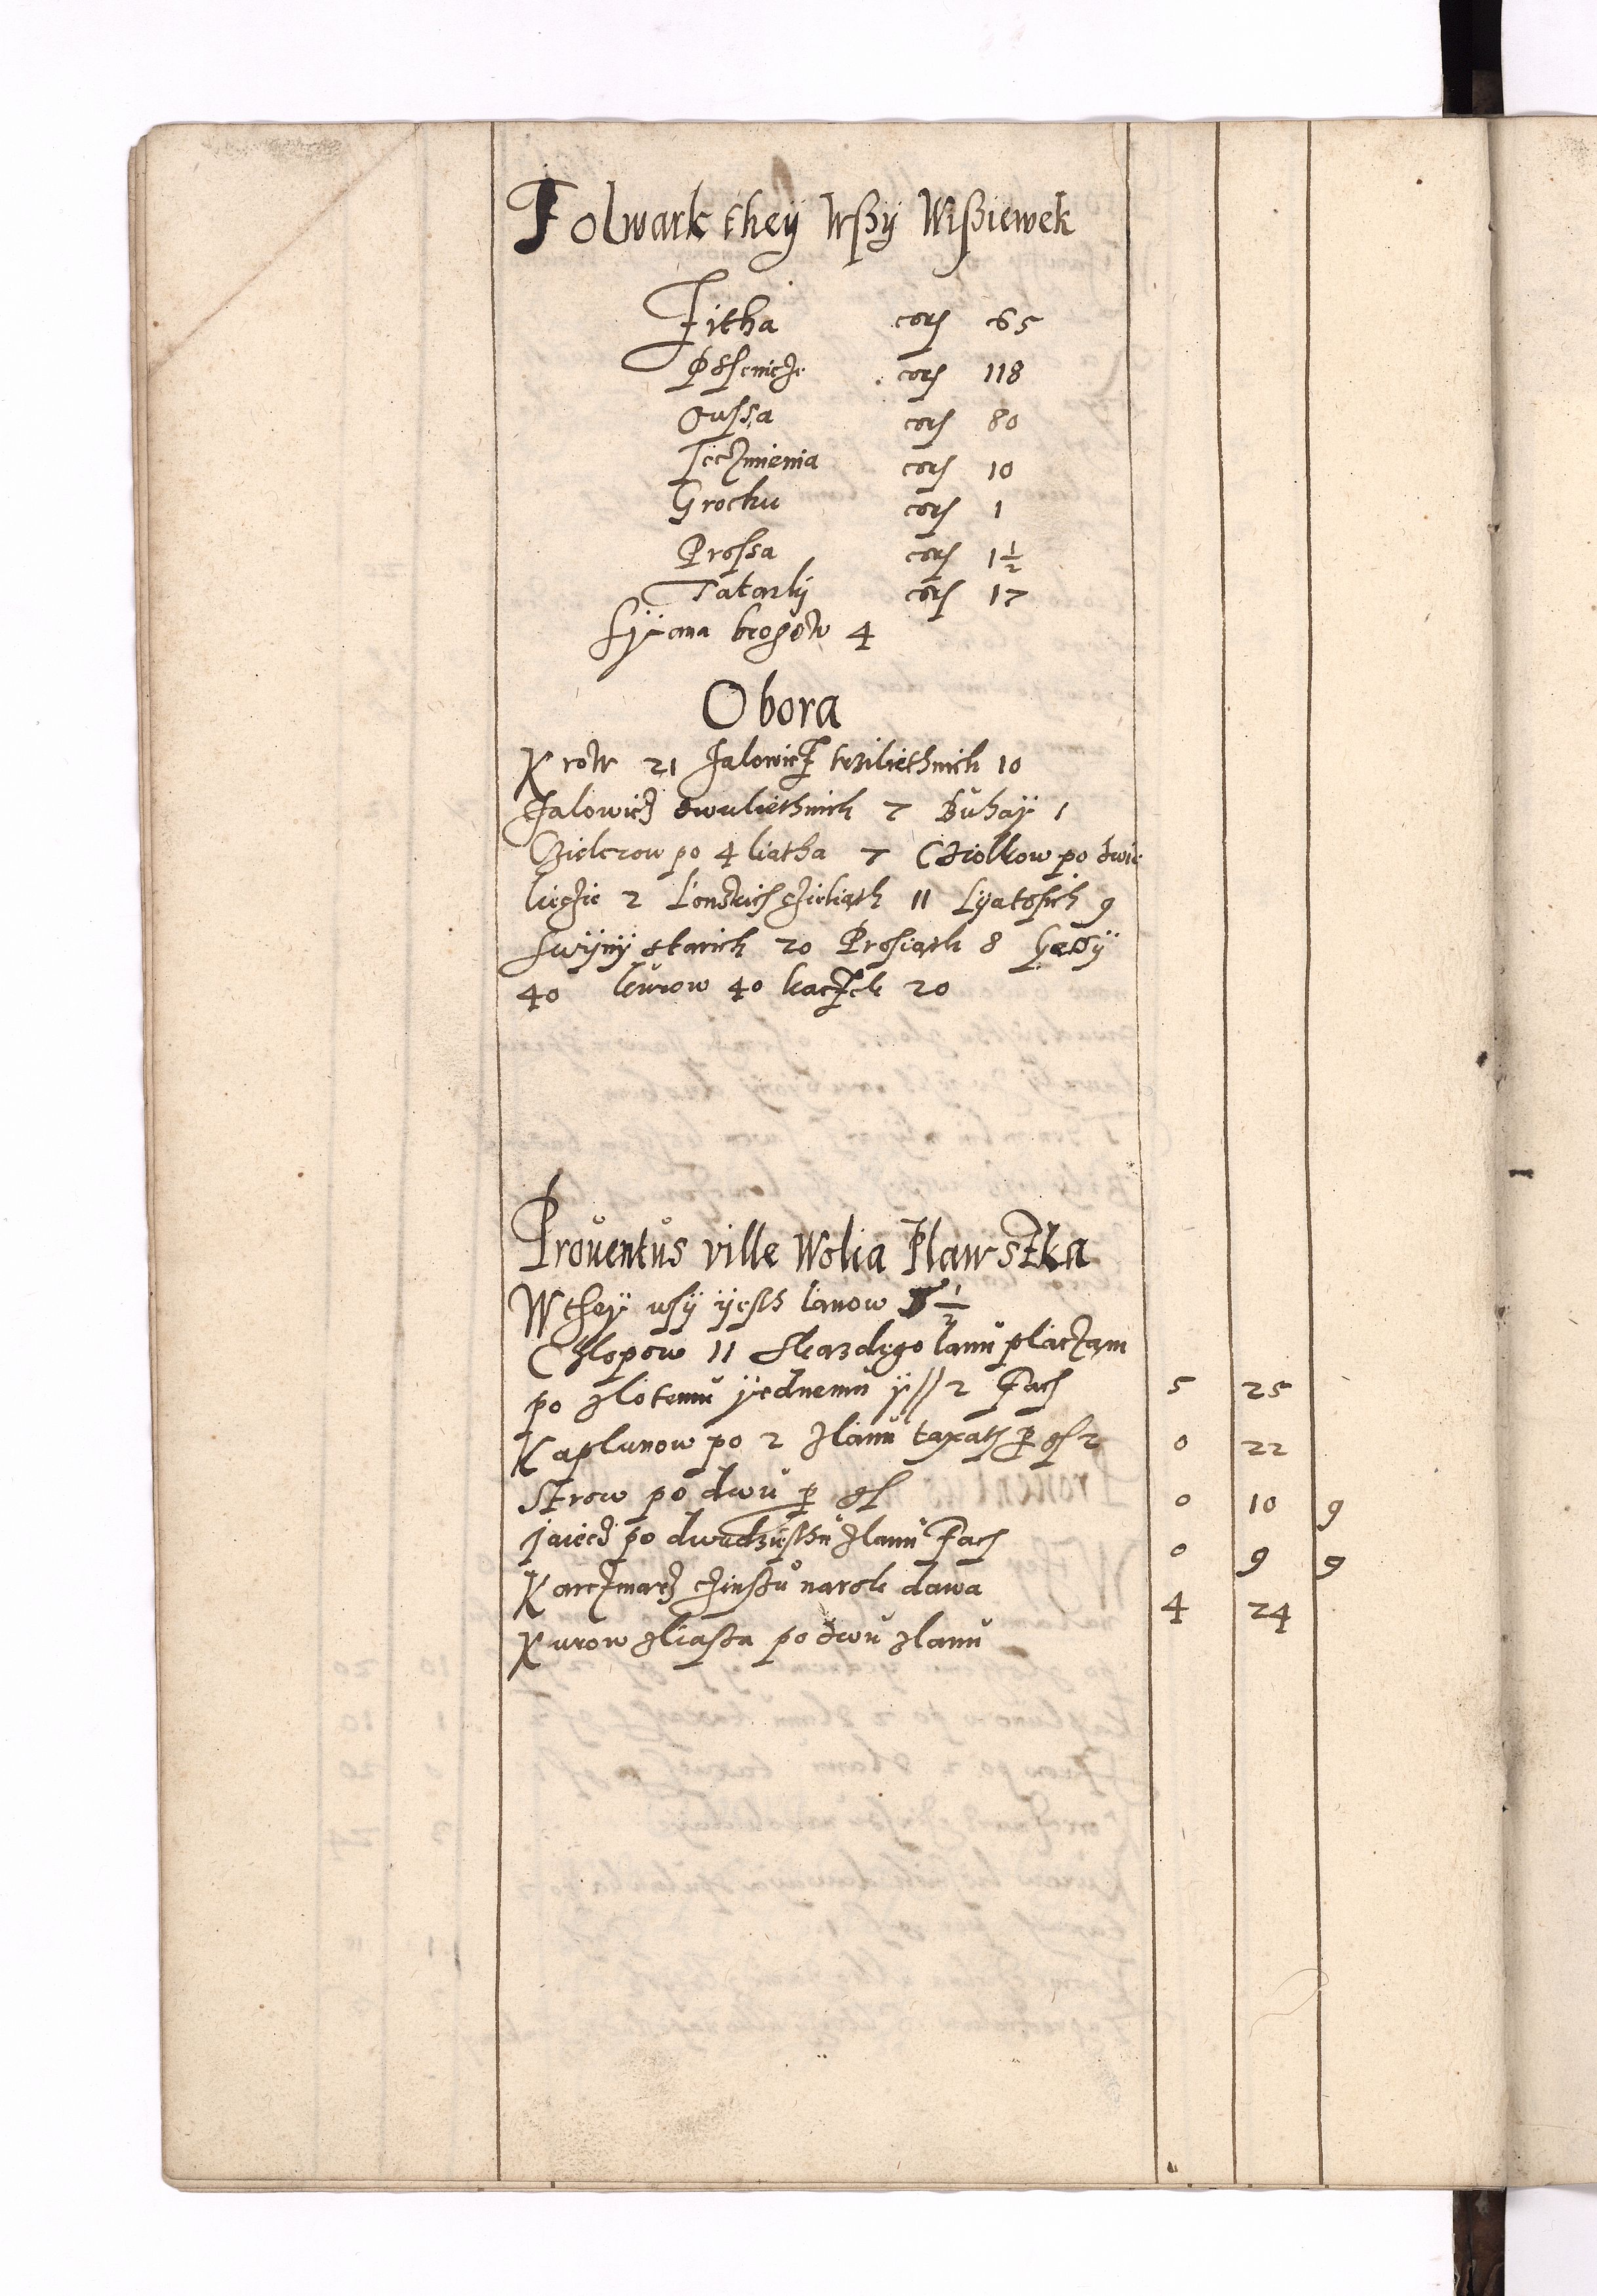 Folwark they Wßÿ Wißiewek
Zitha corj 65
Pssenicze corj 118
Owssa corj 80
Jęczmienia corj 10
Grochu corj 1
Prossa corj 1½
Tatarkÿ corj 17
Syana brogow 4
Obora
Krow 21 Jalowicz trziliethnich 10
Jalowicz dwuliethnich 7 Buhaÿ 1
Czielczow po 4 liatha 7 Cziolkow po dwie
liecie 2 Lonskich czieliąth 11 Lÿatosich 9
Swÿnÿ starich 20 Prosiąth 8 Gęssÿ
40 kurow 40 kaczek 20
Proventus ville Wolia Plawszka
W theÿ wsÿ ÿesth lanow 5½
Chlopow 11 Skazdego lanu placzam
po zlotemu ÿednemu ÿ // 2 Facj 5 25
Kaplunow po 2 zlanu taxatj per gs 2 0 22
Serow po dwu per gs 0 10 9
Jaiecz po dwudziesthu zlanu Facj 0 9 9
Karczmarz czinßu narok dawa 4 24
Kurow zliassa po dwu zlanu